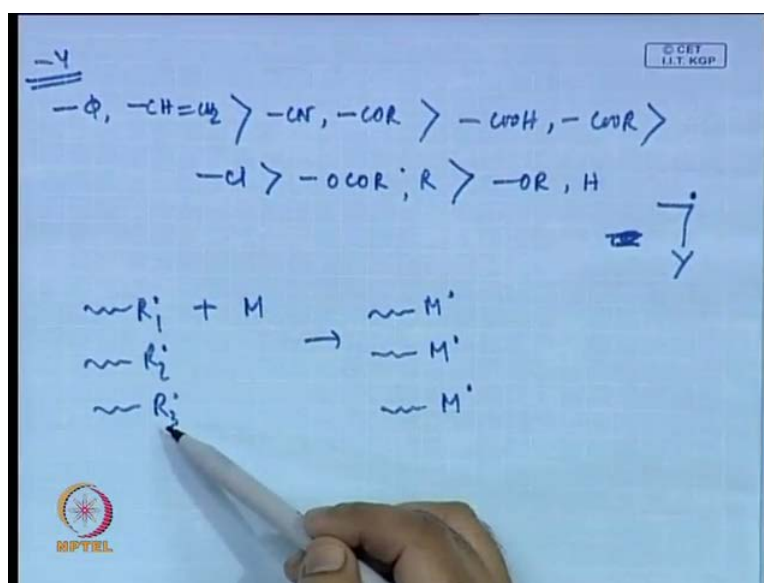 -Y
© CET
I.I.T. KGP
-Φ, -CH=CH₂ > -CN, -COR > -COOH, -COOR >
-Cl > -OCOR; R > -OR, H
Y
R₁• + M → M•
R₂• M•
R₃• M•
NPTEL